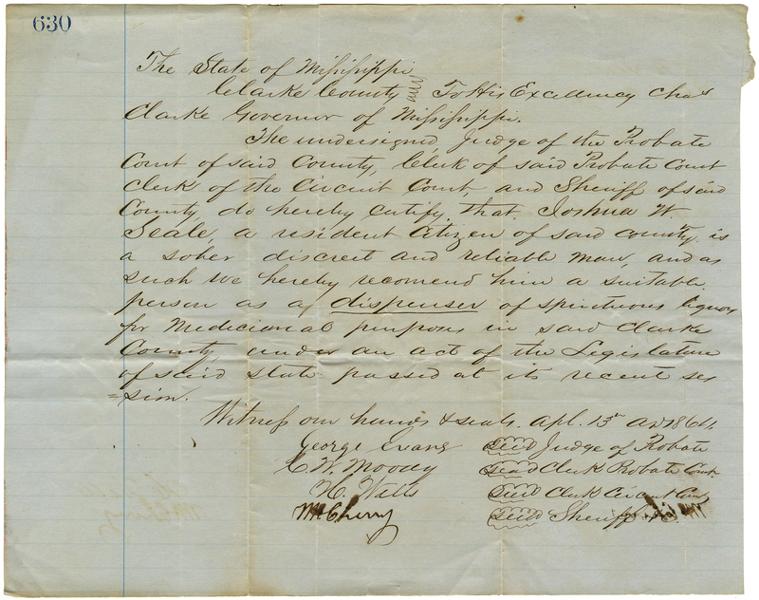 630
The State of Mississippi
Clarke County To His Excellency Chas
Clarke Governor of Mississippi.
The undersigned, Judge of the Probate
Court of said County, Clerk of said Probate Court
Clerk of the Circuit Court, and Sheriff of said
County, do hereby certify, that, Joshua W.
Seale, a resident Citizen of said county is
a sober discreet and reliable man, and as
such we hereby recomend him a suitable
person as a dispenser of spirituous liquors
for Medicional purposes in said Clarke
County, under an act of the Legislature
of said state passed at its recent ses
=sion.
Witness our hands & seals. Apl. 13th AD 1864.
George Evans Seal Judge of Probate
C. W. Moody Seal Clerk Probate Court
H. Wells Seal Clerk Circuit Court
Cherry Seal Sheriff